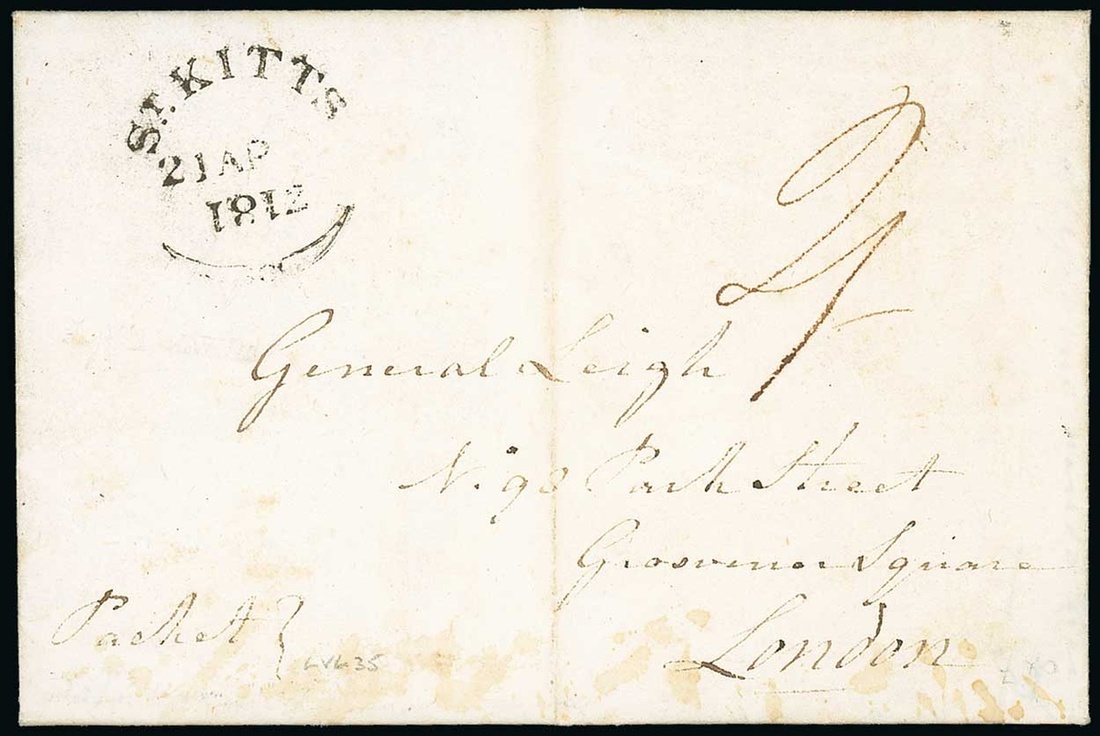 ST. KITTS
21 AP
1812
General Leigh
N. 98 Park Street
Grosvenor Square
London
Packet